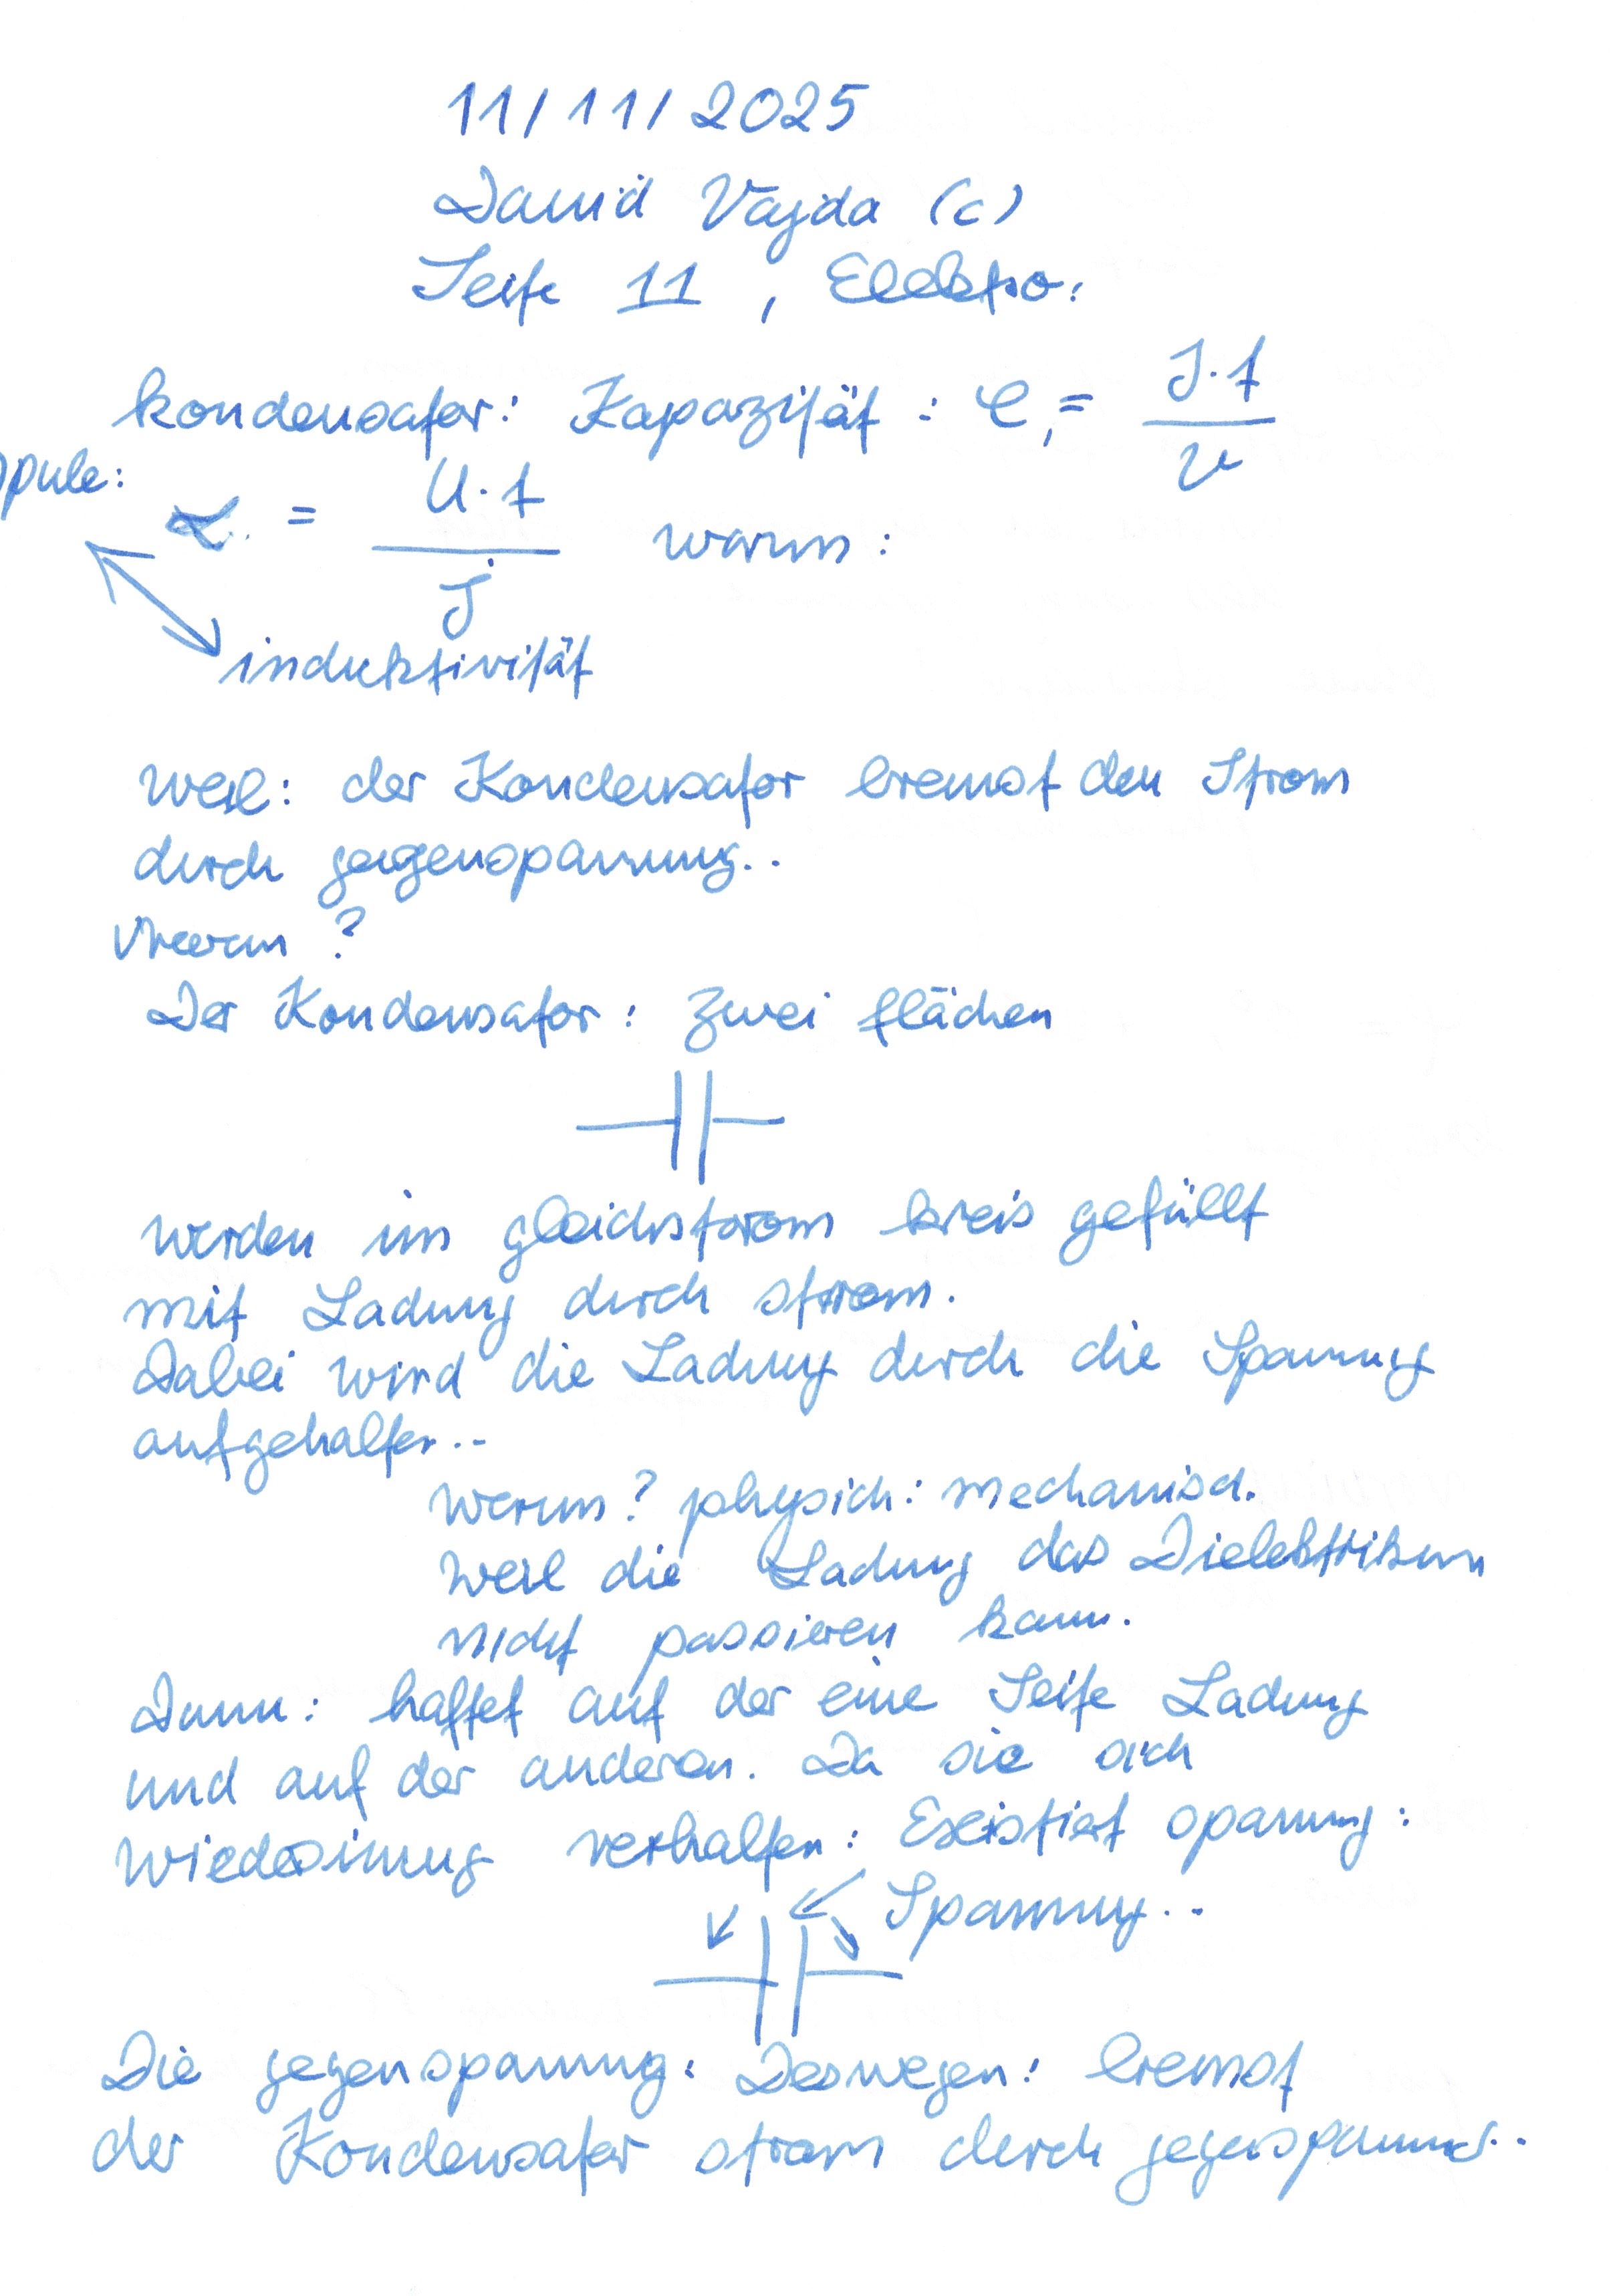 11/11/2025
David Vajda (c)
Seite 11, Elektro:
kondensator: Kapazität: C = I·t / U
pule:
L = U·t / I warum:
induktivität
weil: der Kondensator bremst den Strom
durch gegenspannung..
Warum?
Der Kondensator: zwei flächen
werden im gleichstrom kreis gefüllt
mit Ladung durch strom.
Dabei wird die Ladung durch die Spannung
aufgehalten..
Warum? physich: mechanisch.
weil die Ladung das Dielektrikum
nicht passieren kann.
Dann: haftet auf der eine Seite Ladung
und auf der anderen. Da sie sich
wiedersinnig verhalten: Existiert spannung:
Spannung..
Die gegenspannung: Deswegen: bremst
der Kondensator strom durch gegenspannung..